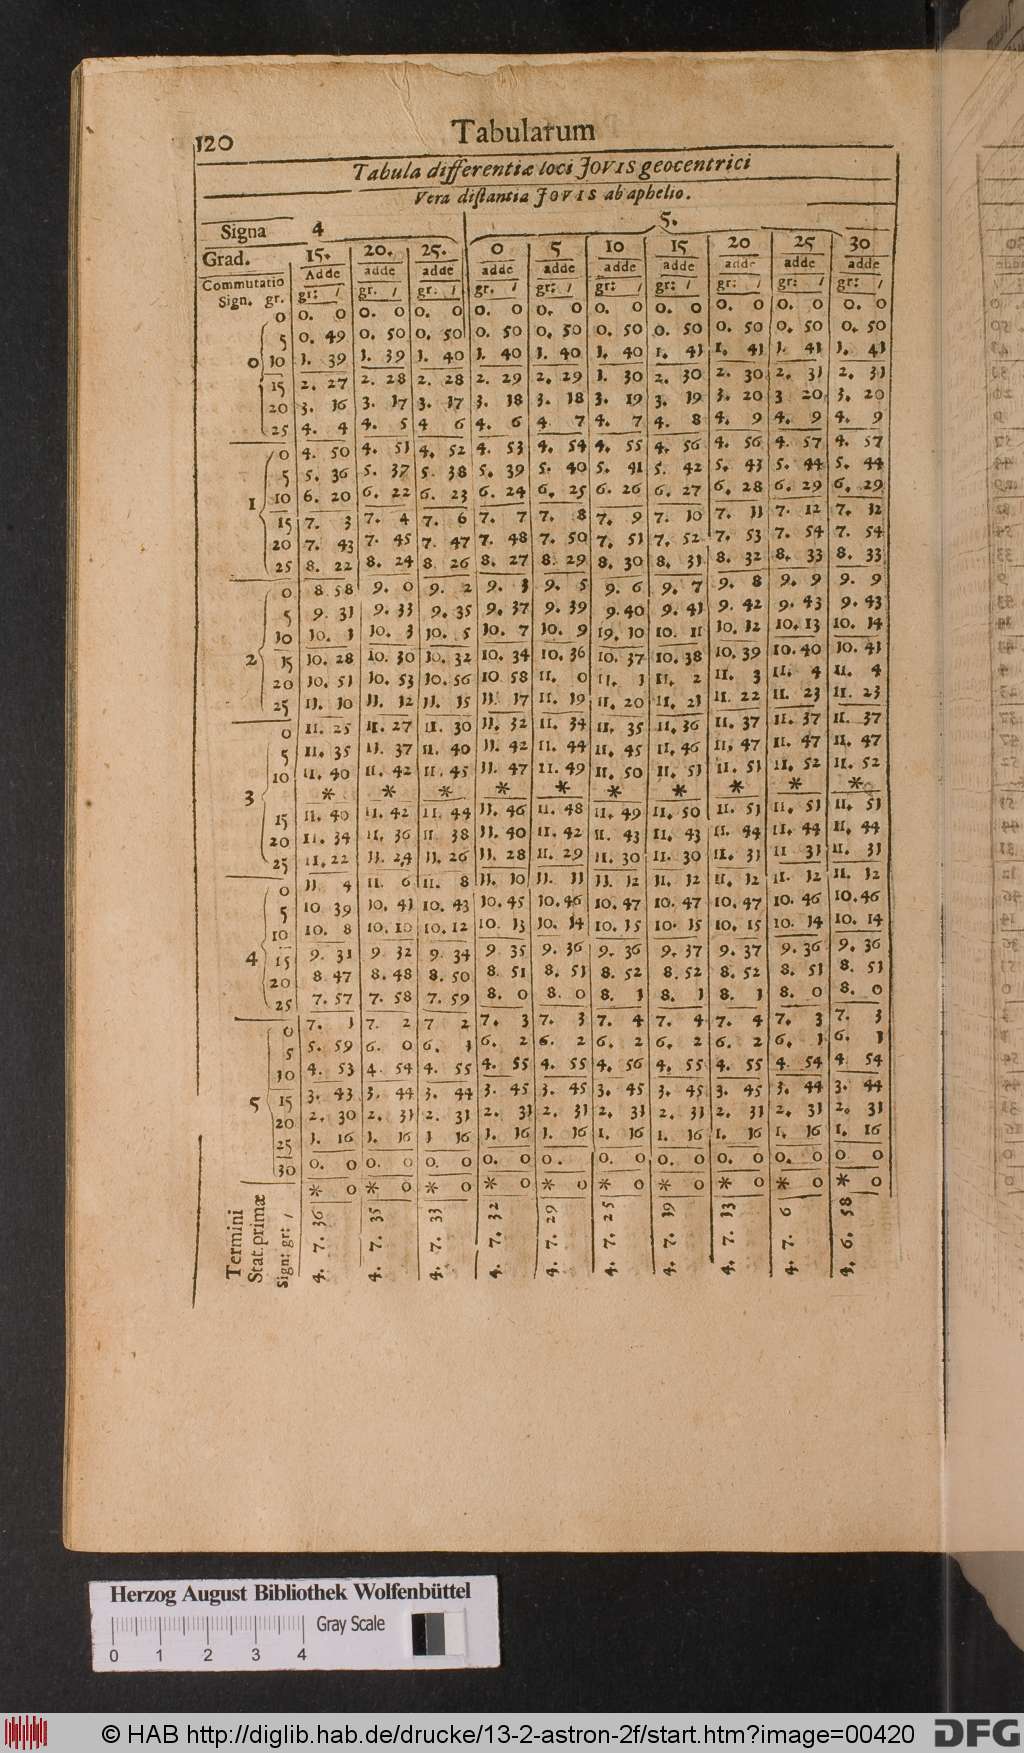 120 Tabularum
Tabula differentiæ loci JOVIS geocentrici
Vera distantia JOVIS ab aphelio.
Signa 4 5.
Grad. 15. 20. 25. 0 5 10 15 20 25 30
Adde adde adde adde adde adde adde adde adde adde
Commutatio
Sign. gr. gr: / gr. / gr: / gr. / gr: / gr: / gr: / gr: / gr: / gr: /
0 0. 0 0. 0 0. 0 0. 0 0. 0 0. 0 0. 0 0. 0 0. 0 0. 0
5 0. 49 0. 50 0. 50 0. 50 0. 50 0. 50 0. 50 0. 50 0. 50 0. 50
0 10 1. 39 1. 39 1. 40 1. 40 1. 40 1. 40 1. 41 1. 41 1. 41 1. 41
15 2. 27 2. 28 2. 28 2. 29 2. 29 1. 30 2. 30 2. 30 2. 31 2. 31
20 3. 16 3. 17 3. 17 3. 18 3. 18 3. 19 3. 19 3. 20 3 20 3. 20
25 4. 4 4. 5 4 6 4. 6 4 7 4. 7 4. 8 4. 9 4. 9 4. 9
0 4. 50 4. 51 4. 52 4. 53 4. 54 4. 55 4. 56 4. 56 4. 57 4. 57
5 5. 36 5. 37 5. 38 5. 39 5. 40 5. 41 5. 42 5. 43 5. 44 5. 44
1 10 6. 20 6. 22 6. 23 6. 24 6. 25 6. 26 6. 27 6. 28 6. 29 6. 29
15 7. 3 7. 4 7. 6 7. 7 7. 8 7. 9 7. 10 7. 11 7. 12 7. 12
20 7. 43 7. 45 7. 47 7. 48 7. 50 7. 51 7. 52 7. 53 7. 54 7. 54
25 8. 22 8. 24 8. 26 8. 27 8. 29 8. 30 8. 31 8. 32 8. 33 8. 33
0 8. 58 9. 0 9. 2 9. 3 9. 5 9. 6 9. 7 9. 8 9. 9 9. 9
5 9. 31 9. 33 9. 35 9. 37 9. 39 9. 40 9. 41 9. 42 9. 43 9. 43
10 10. 1 10. 3 10. 5 10. 7 10. 9 19. 10 10. 11 10. 12 10. 13 10. 14
2 15 10. 28 10. 30 10. 32 10. 34 10. 36 10. 37 10. 38 10. 39 10. 40 10. 41
20 10. 51 10. 53 10. 56 10 58 11. 0 11. 1 11. 2 11. 3 11. 4 11. 4
25 11. 10 11. 12 11. 15 11. 17 11. 19 11. 20 11. 21 11. 22 11. 23 11. 23
0 11. 25 11. 27 11. 30 11. 32 11. 34 11. 35 11. 36 11. 37 11. 37 11. 37
5 11. 35 11. 37 11. 40 11. 42 11. 44 11. 45 11. 46 11. 47 11. 47 11. 47
10 11. 40 11. 42 11. 45 11. 47 11. 49 11. 50 11. 51 11. 51 11. 52 11. 52
3 * * * * * * * * * *
15 11. 40 11. 42 11. 44 11. 46 11. 48 11. 49 11. 50 11. 51 11. 51 11. 51
20 11. 34 11. 36 11. 38 11. 40 11. 42 11. 43 11. 43 11. 44 11. 44 11. 44
25 11. 22 11. 24 11. 26 11. 28 11. 29 11. 30 11. 30 11. 31 11 31 11. 31
0 11. 4 11. 6 11. 8 11. 10 11. 11 11. 12 11. 12 11. 12 11. 12 11. 12
5 10 39 10. 41 10. 43 10. 45 10. 46 10. 47 10. 47 10. 47 10. 46 10. 46
10 10. 8 10. 10 10. 12 10. 13 10. 14 10. 15 10. 15 10. 15 10. 14 10. 14
4 15 9. 31 9 32 9. 34 9 35 9. 36 9. 36 9. 37 9. 37 9. 36 9. 36
20 8. 47 8. 48 8. 50 8. 51 8. 51 8. 52 8. 52 8. 52 8. 51 8. 51
25 7. 57 7. 58 7. 59 8. 0 8. 0 8. 1 8. 1 8. 1 8. 0 8. 0
0 7. 1 7. 2 7 2 7. 3 7. 3 7. 4 7. 4 7. 4 7. 3 7. 3
5 5. 59 6. 0 6. 1 6. 2 6. 2 6. 2 6. 2 6. 2 6. 1 6. 1
10 4. 53 4 54 4. 55 4. 55 4. 55 4. 56 4. 55 4. 55 4 54 4 54
5 15 3. 43 3. 44 3. 44 3. 45 3. 45 3. 45 3. 45 3. 45 3. 44 3. 44
20 2. 30 2. 31 2. 31 2. 31 2. 31 2. 31 2. 31 2. 31 2. 31 2. 31
25 1. 16 1. 16 1 16 1. 16 1. 16 1. 16 1. 16 1. 16 1. 16 1. 16
30 0. 0 0. 0 0. 0 0. 0 0. 0. 0 0. 0 0. 0 0. 0 0. 0
* 0 * 0 * 0 * 0 * 0 * 0 * 0 * 0 * 0 * 0
Termini
Stat. primæ
Sign: gr: /
4. 7. 36
4. 7. 35
4. 7. 33
4. 7. 32
4. 7. 29
4. 7. 25
4. 7. 19
4. 7. 13
4. 7. 6
4. 6. 58
Herzog August Bibliothek Wolfenbüttel
Gray Scale
0 1 2 3 4
© HAB http://diglib.hab.de/drucke/13-2-astron-2f/start.htm?image=00420 DFG